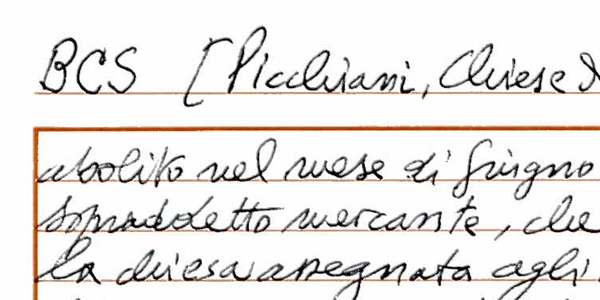 BCS [Picchiani, Chiese
abolito nel mese di giugno
sopraddetto mercante, che
la chiesa assegnata agli